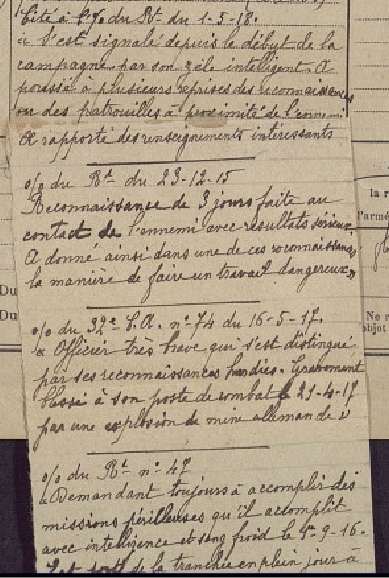 Cité à l'o/. du Rt du 1-5-18.
« s'est signalé depuis le début de la
campagne par son zèle intelligent. A
poussé à plusieurs reprises des reconnaissances
ou des patrouilles à proximité de l'ennemi
A rapporté des renseignements intéressants
o/o du Rt du 23-12-15
Reconnaissance de 3 jours faite au
contact de l'ennemi avec résultats sérieux.
A donné ainsi dans une de ces reconnaissances
la manière de faire un travail dangereux »
o/o du 32e C.A. n° 74 du 16-5-17.
« Officier très brave, qui s'est distingué
par ses reconnaissances hardies. Grièvement
blessé à son poste de combat le 21-4-17
par une explosion de mine allemande »
o/o du Rt n° 47
« Demandant toujours à accomplir des
missions périlleuses qu'il accomplit
avec intelligence et sang froid le 1er-9-16.
Est sorti de la tranchée en plein jour à
la r
l'armé
Du
Du
Ne r
objet